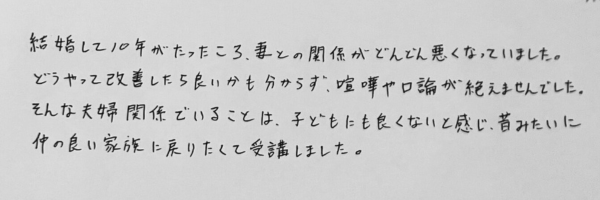 結婚して10年がたったころ、妻との関係がどんどん悪くなっていました。
どうやって改善したら良いかも分からず、喧嘩や口論が絶えませんでした。
そんな夫婦関係でいることは、子どもにも良くないと感じ、昔みたいに
仲の良い家族に戻りたくて受講しました。